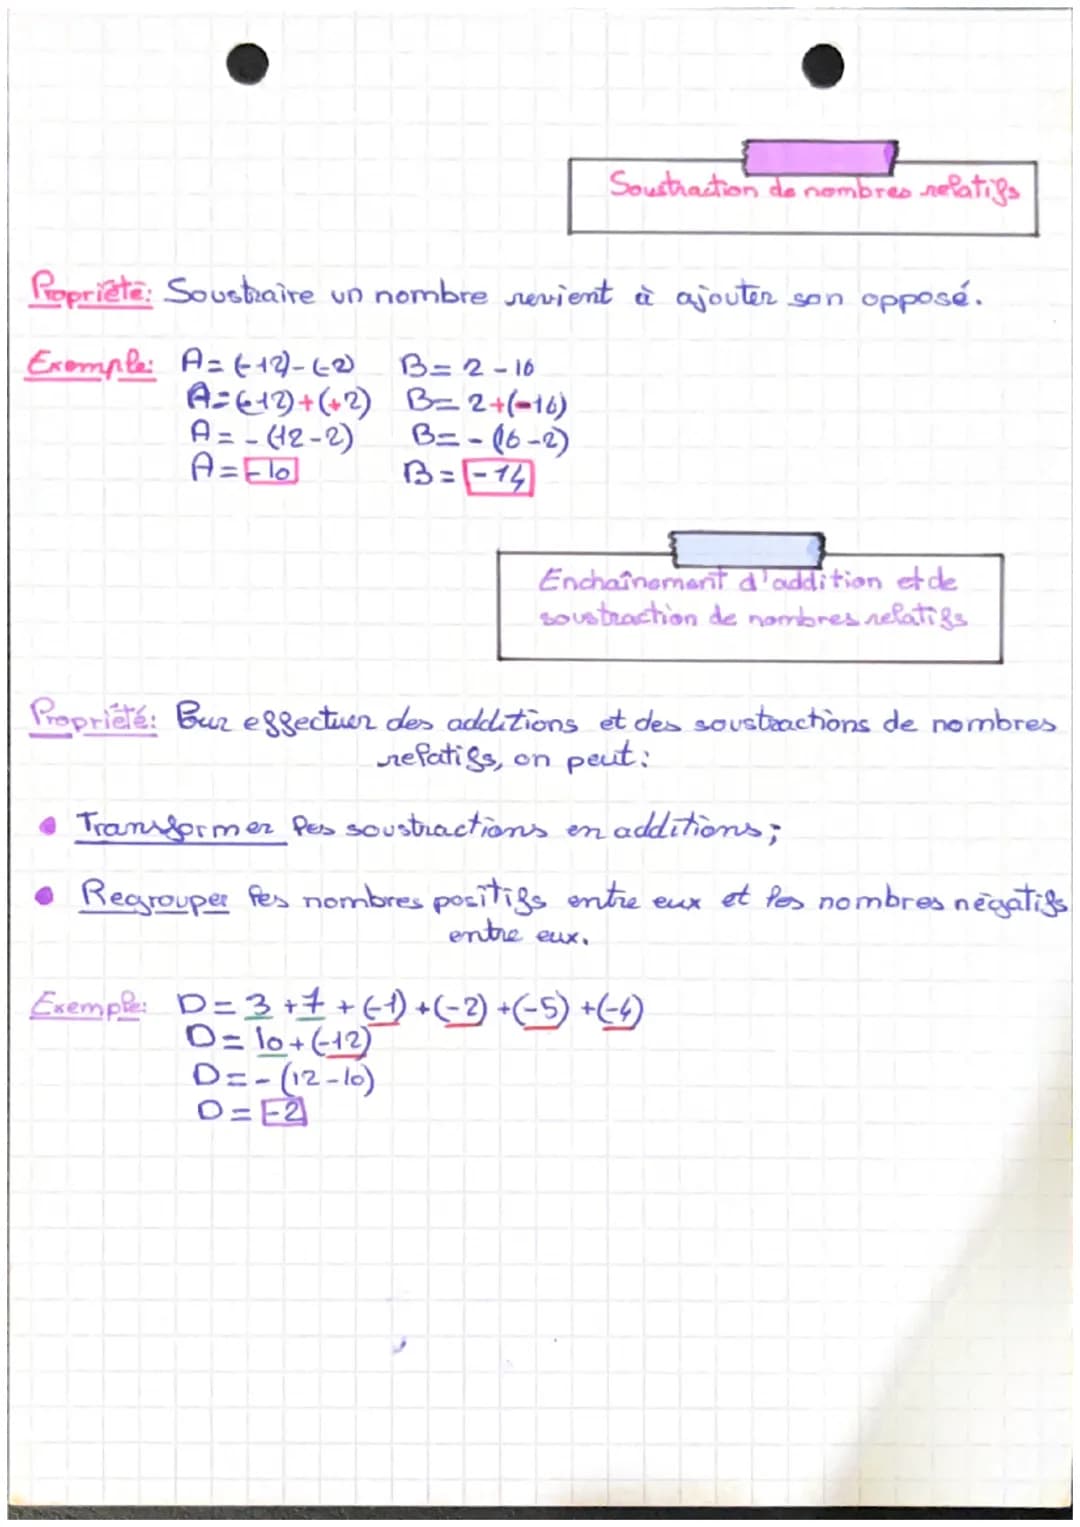 Soustraction de nombres relatifs
Propriété: Soustraire un nombre revient à ajouter son opposé.
Exemple: A= (-12)-(-2) B= 2-16
A=(-12)+(+2) B= 2+(-16)
A= -(12-2) B= -(16-2)
A= -10 B= -14
Enchaînement d'addition et de
soustraction de nombres relatifs
Propriété: Pour effectuer des additions et des soustractions de nombres
relatifs, on peut:
• Transformer les soustractions en additions;
• Regrouper les nombres positifs entre eux et les nombres négatifs
entre eux.
Exemple: D= 3 +7 +(-1) +(-2) +(-5) +(-4)
D= 10+(-12)
D= -(12-10)
D= -2